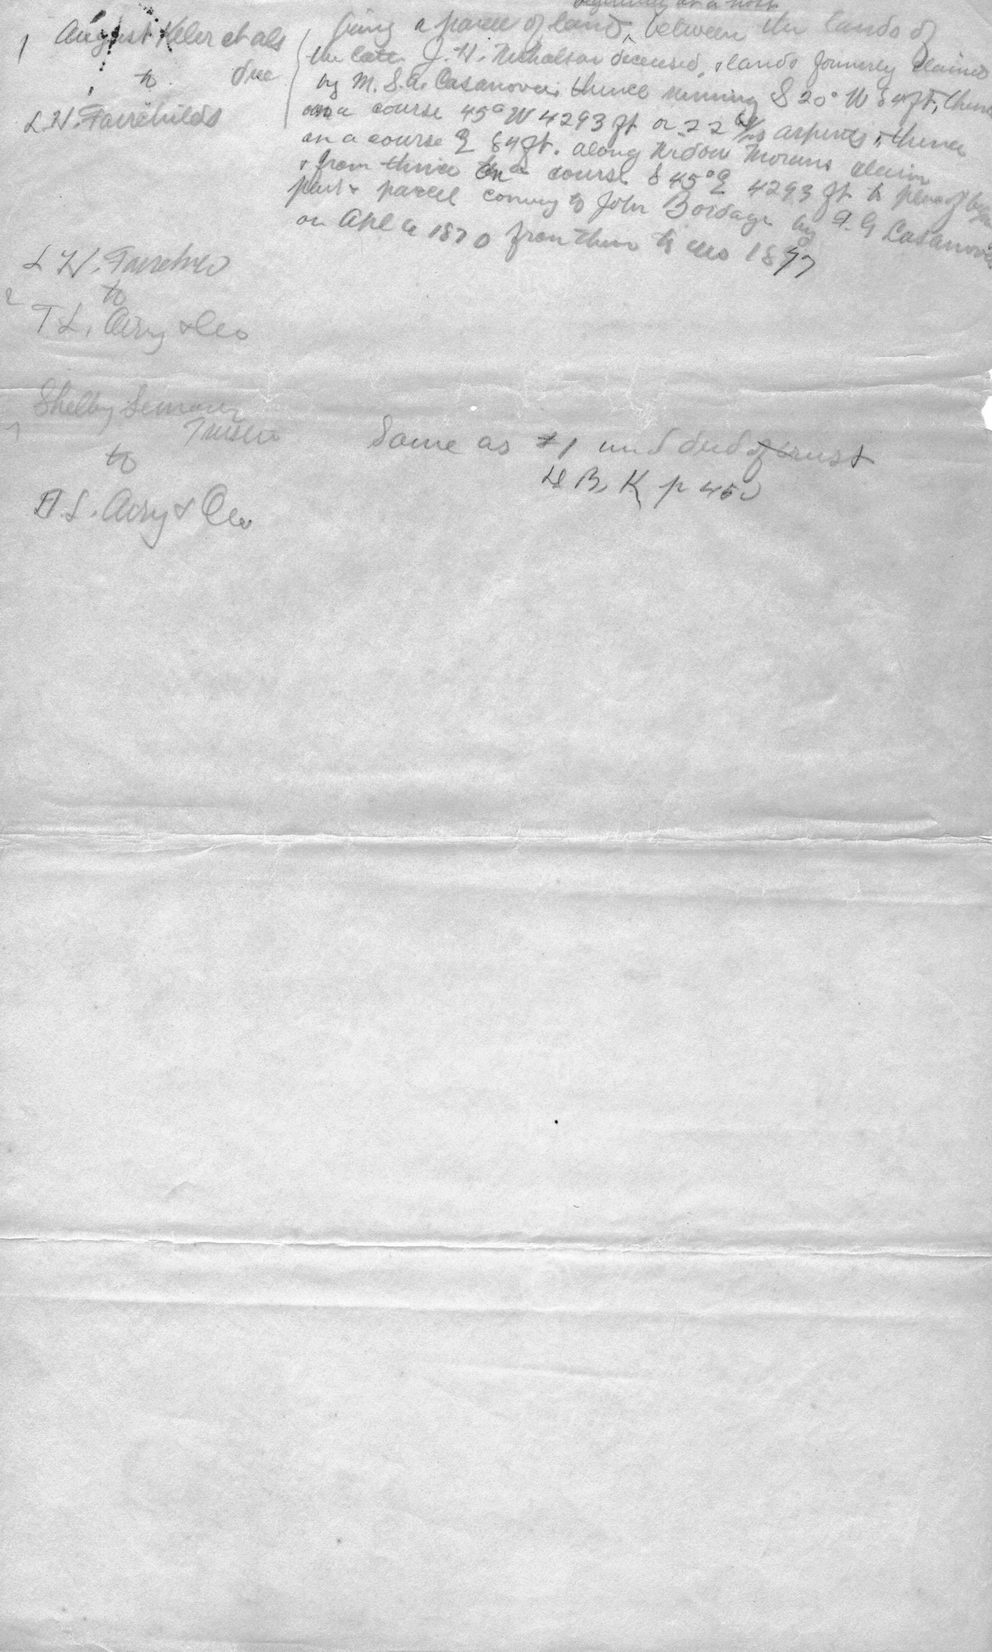 beginning at a post
1 August Keler et als
to
dec
L. H. Fairchilds
being a parcel of land, between the lands of
the late J. H. Nicholson deceased, & lands formerly claimed
by M. S. A. Casanova; thence running S 20° W 64 ft, thence
on a course 45° W 4293 ft or 22 aspents, thence
on a course E 64 ft. along Widow Morans claim
& from thence on a course S 45° E 4293 ft to place of
part & parcel convey to John Bordage by A. G Casanova
on Apl 1870 from them to us 1877
L H. Fairchild
2 to
T. L. Airy & Co
Shelby
Trustee
to
H. L. Airy & Co
Same as #1 and deed of trust
D B. K p 450